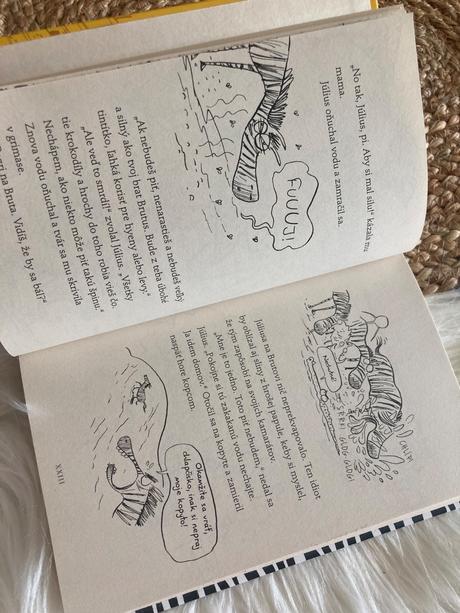 „No tak, Július, pi. Aby si mal silu!“ kázala mu
mama.
Július oňuchal vodu a zamračil sa.
FUUUJ!
„Ak nebudeš piť, nenarastieš a nebudeš veľký
a silný ako tvoj brat Brutus. Bude z teba úbohé
tintítko, ľahká korisť pre hyeny alebo levy.“
„Ale veď to smrdí!“ zvolal Július. „Všetky
tie krokodíly a hrochy do toho robia vieš čo.
Nechápem, ako niekto môže piť takú špinu.“
Znova vodu oňuchal a tvár sa mu skrivila
v grimase.
na Bruta. Vidíš, že by sa bál?“
SRRK!
GLOG
GLOG!
Júliusa na Brutovi nič neprekvapovalo. Ten idiot
by oblízal aj sliny z hrošej papule, keby si myslel,
že tým zapôsobí na svojich kamarátov.
„Mne je to jedno. Toto piť nebudem,“ nedal sa
Július. „Pokojne si tú zakakanú vodu nechajte.
Ja idem domov.“ Otočil sa na kopyte a zamieril
naspäť hore kopcom.
Okamžite sa vráť,
chlapčisko, inak si nepraj
moje kopyto!
XXIII